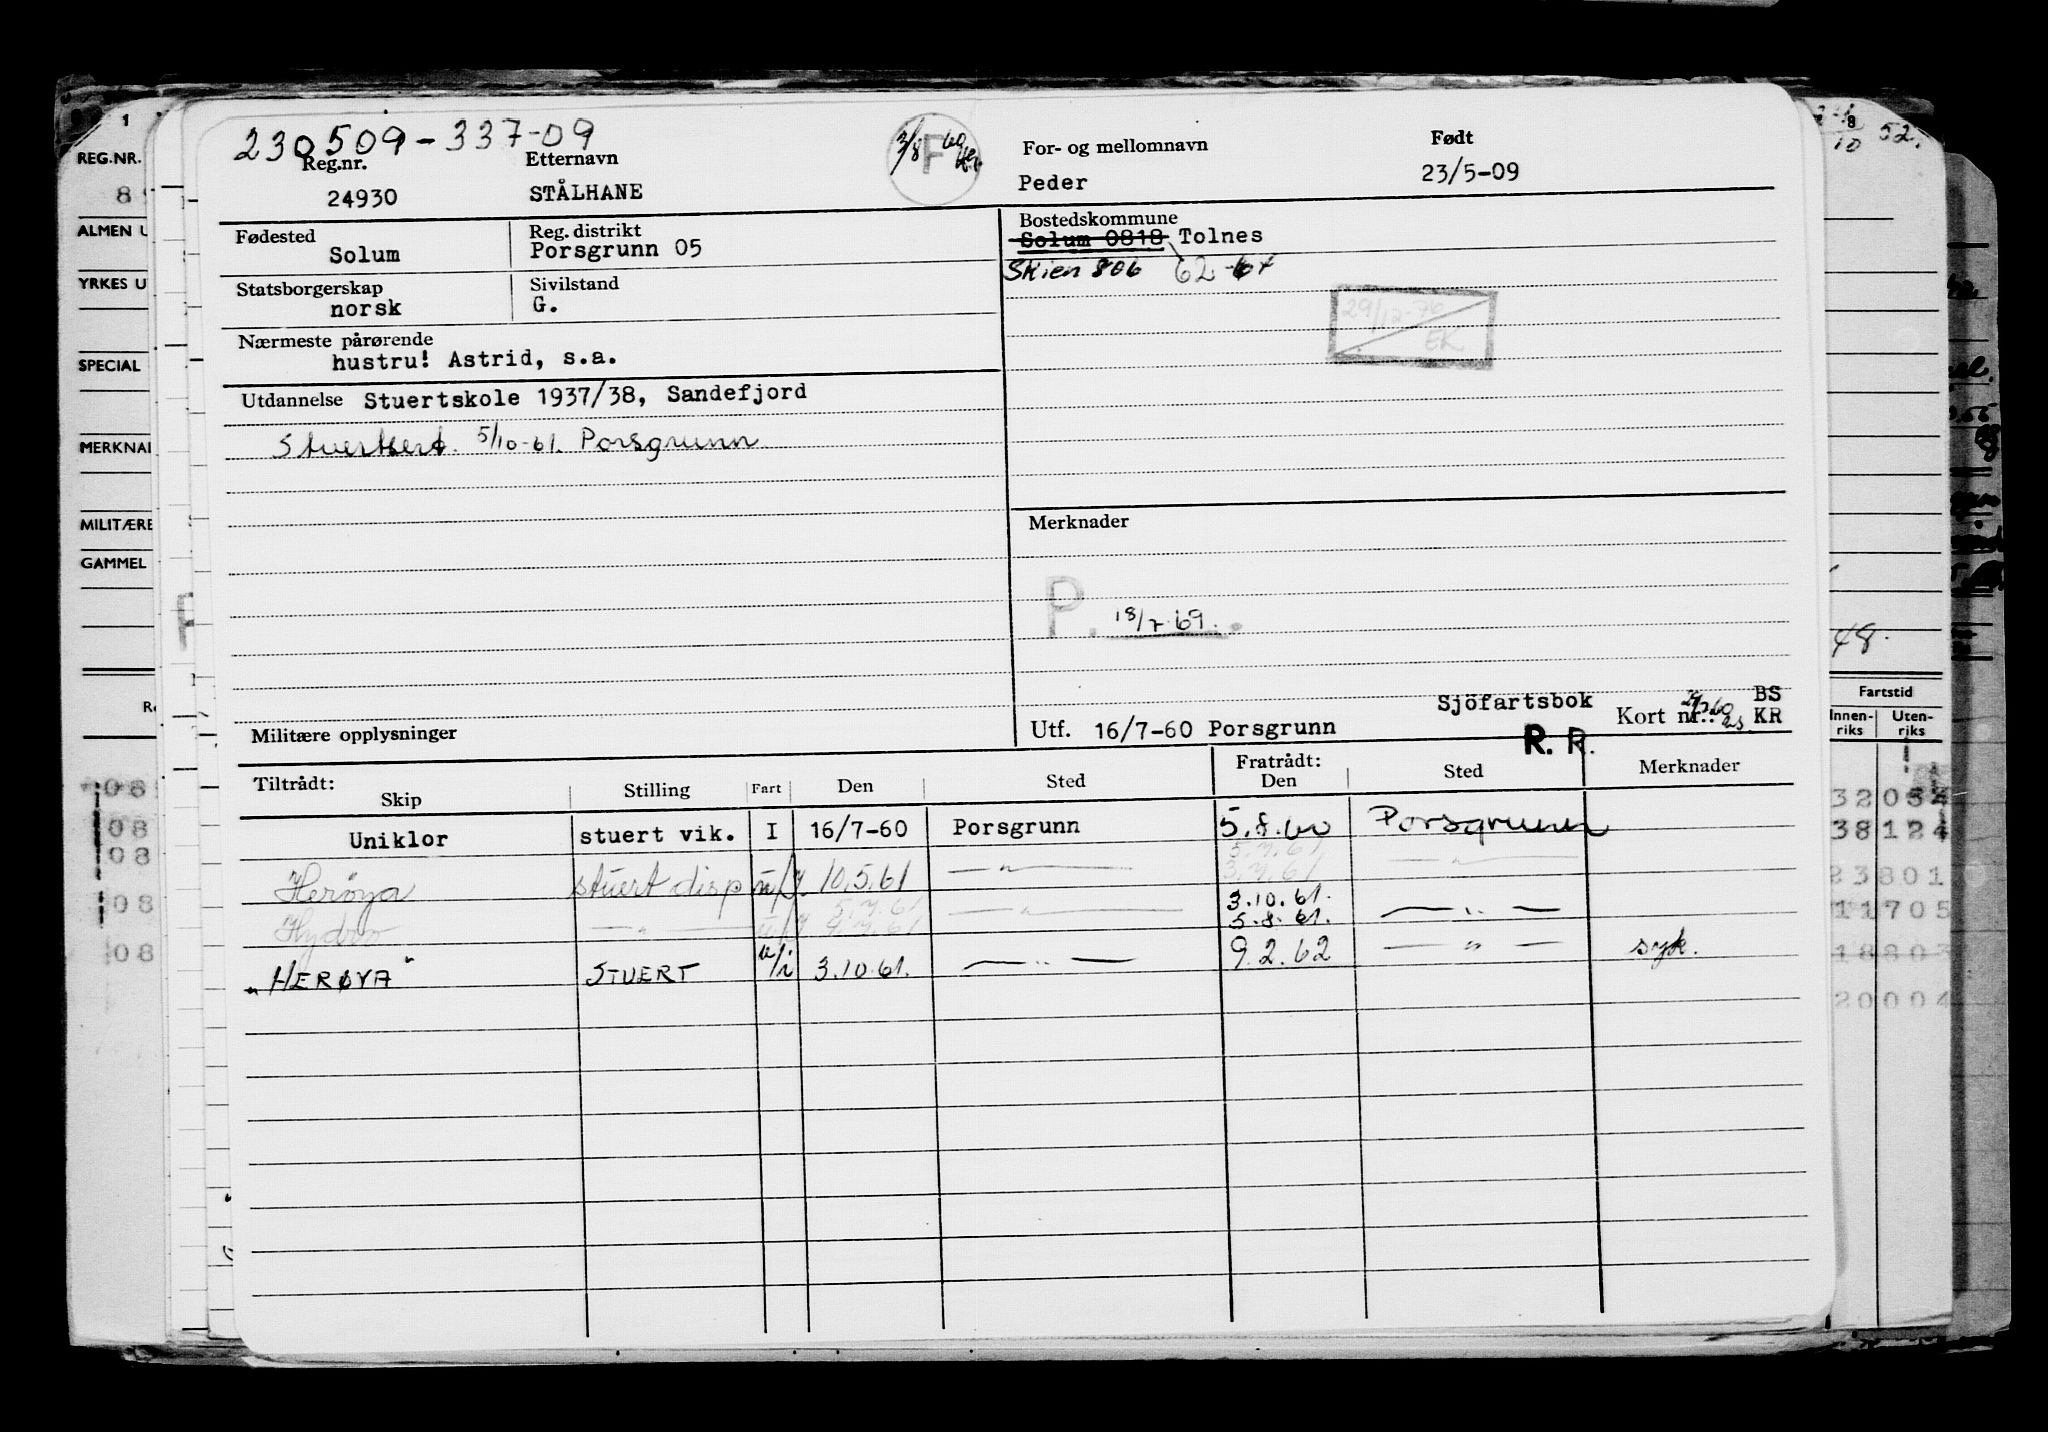 230509-337-09
Reg.nr. Etternavn For- og mellomnavn Født
24930 STÅLHANE F Peder 23/5-09
Fødested Reg. distrikt Bostedskommune
Solum Porsgrunn 05 Solum 0818 Tolnes
Skien 806
Statsborgerskap Sivilstand
norsk G.
29/12-76
EK
Nærmeste pårørende
hustru! Astrid, s.a.
Utdannelse Stuertskole 1937/38, Sandefjord
Stuertsert. 5/10-61. Porsgrunn
Merknader
P. 18/7-69.
Sjöfartsbok BS
Militære opplysninger Utf. 16/7-60 Porsgrunn Kort nr.: KR
R. R.
Tiltrådt: Fratrådt:
Skip Stilling Fart Den Sted Den Sted Merknader
Uniklor stuert vik. I 16/7-60 Porsgrunn 5.8.60 Porsgrunn
5.7.61
3.7.61
Herøya stuert disp u/i 10.5.61 — " — — " —
3.10.61.
5.7.61
Hydro — " — — " — 5.8.61. — " —
"HERØYA" STUERT u/i 3.10.61. — " — 9.2.62 — " — syk.
1
REG.NR.
ALMEN U
YRKES U
SPECIAL
MERKNAD
MILITÆRE
GAMMEL
8
10 52.
48.
Fartstid
Innen- Uten-
riks riks
08
08
08
08
08
38124
23801
11705
18803
20004